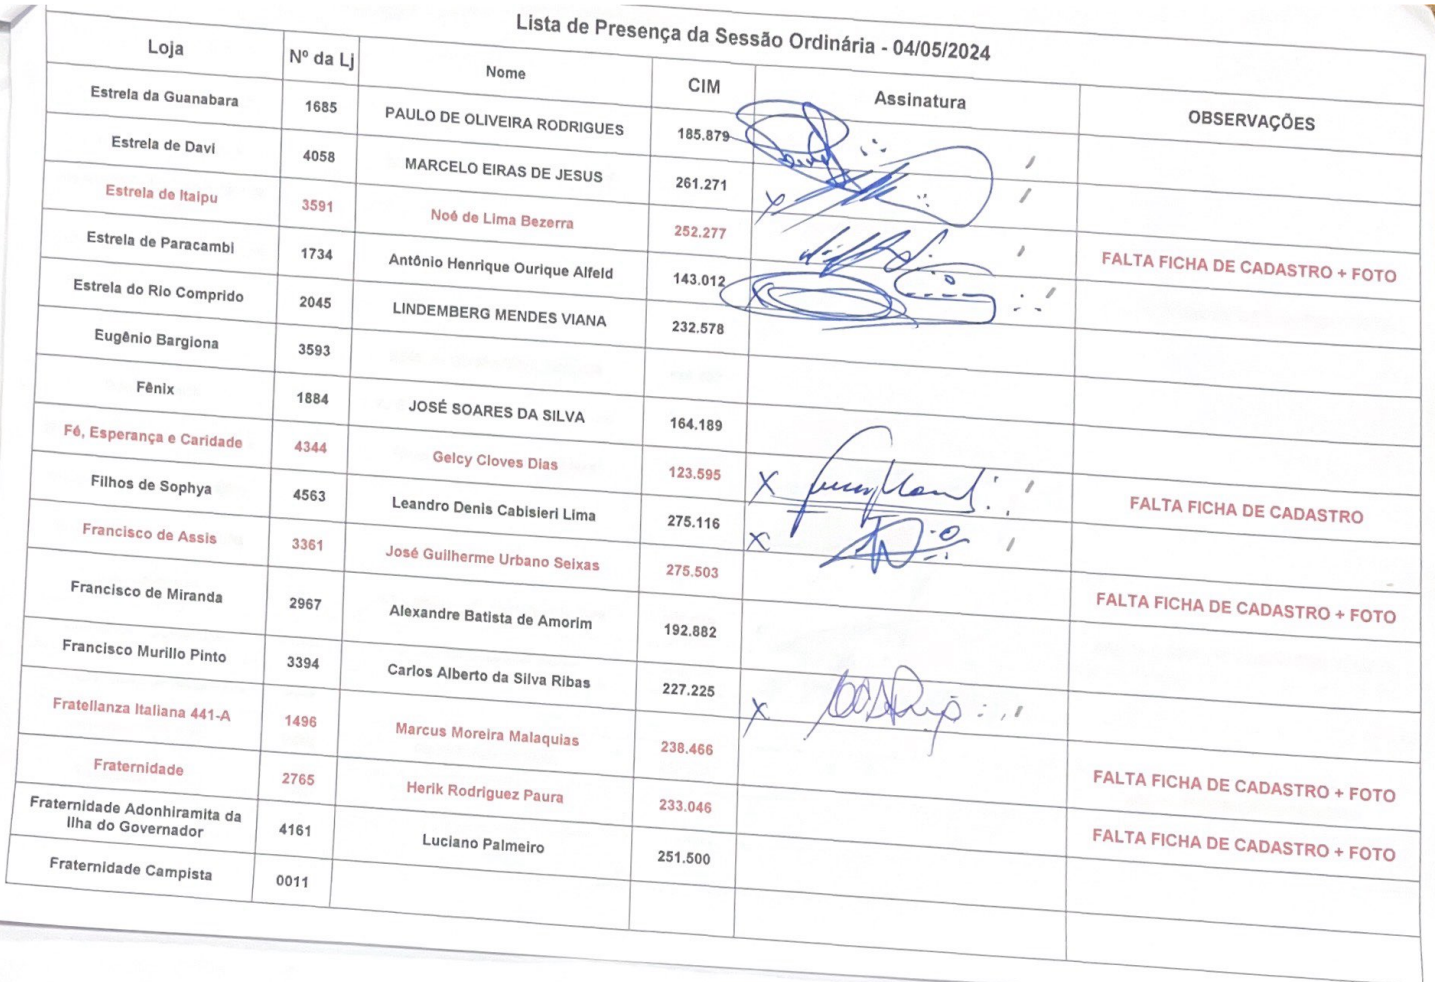 Lista de Presença da Sessão Ordinária - 04/05/2024
Loja Nº da Lj Nome CIM Assinatura OBSERVAÇÕES
Estrela da Guanabara 1685 PAULO DE OLIVEIRA RODRIGUES 185.879
Estrela de Davi 4058 MARCELO EIRAS DE JESUS 261.271
Estrela de Itaipu 3591 Noé de Lima Bezerra 252.277 FALTA FICHA DE CADASTRO + FOTO
Estrela de Paracambi 1734 Antônio Henrique Ourique Alfeld 143.012
Estrela do Rio Comprido 2045 LINDEMBERG MENDES VIANA 232.578
Eugênio Bargiona 3593
Fênix 1884 JOSÉ SOARES DA SILVA 164.189
Fé, Esperança e Caridade 4344 Gelcy Cloves Dias 123.595 FALTA FICHA DE CADASTRO
Filhos de Sophya 4563 Leandro Denis Cabisieri Lima 275.116
Francisco de Assis 3361 José Guilherme Urbano Seixas 275.503 FALTA FICHA DE CADASTRO + FOTO
Francisco de Miranda 2967 Alexandre Batista de Amorim 192.882
Francisco Murillo Pinto 3394 Carlos Alberto da Silva Ribas 227.225
Fratellanza Italiana 441-A 1496 Marcus Moreira Malaquias 238.466 FALTA FICHA DE CADASTRO + FOTO
Fraternidade 2765 Herik Rodriguez Paura 233.046 FALTA FICHA DE CADASTRO + FOTO
Fraternidade Adonhiramita da
Ilha do Governador 4161 Luciano Palmeiro 251.500
Fraternidade Campista 0011